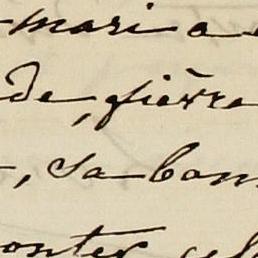 mari a
de, fièvre
, sa bon
onter